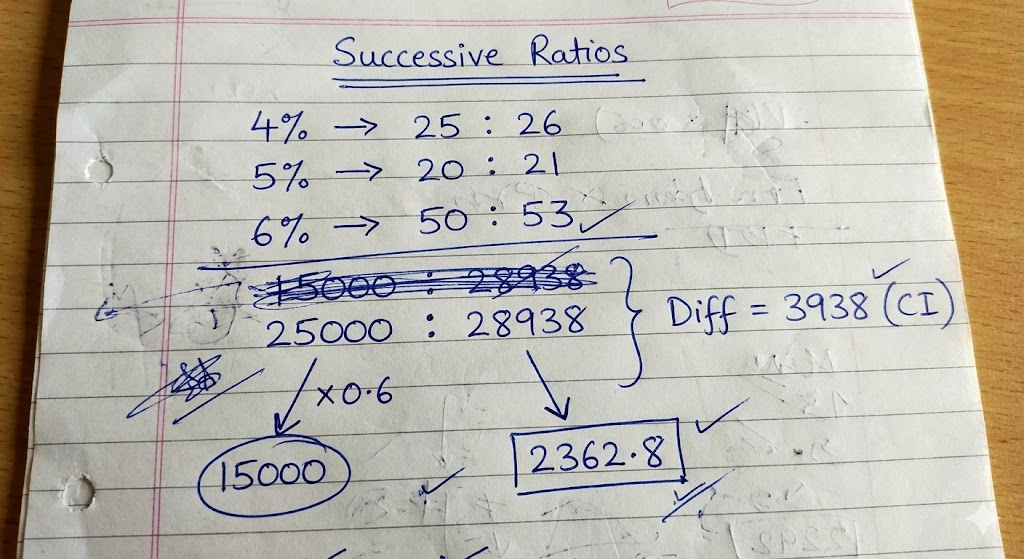 Successive Ratios
4% → 25 : 26
5% → 20 : 21
6% → 50 : 53 ✓
15000 : 28938
25000 : 28938 } Diff = 3938 (CI) ✓
×0.6
15000
2362.8 ✓